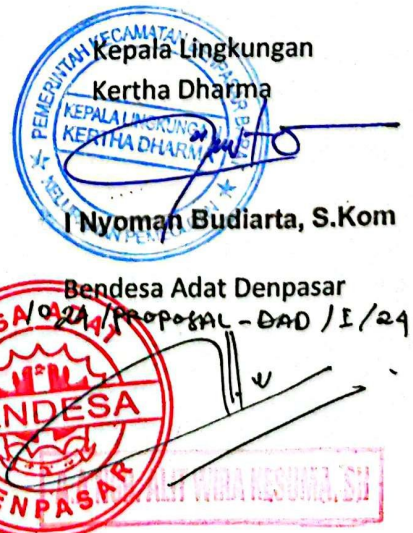 Kepala Lingkungan
Kertha Dharma
PEMERINTAH KECAMATAN DENPASAR BARAT
KEPALA LINGKUNGAN
KERTHA DHARMA
KELURAHAN PEMECUTAN
I Nyoman Budiarta, S.Kom
Bendesa Adat Denpasar
/PROPOSAL-DAD/I/24
BENDESA
DENPASAR
WIRA KESUMA, SH